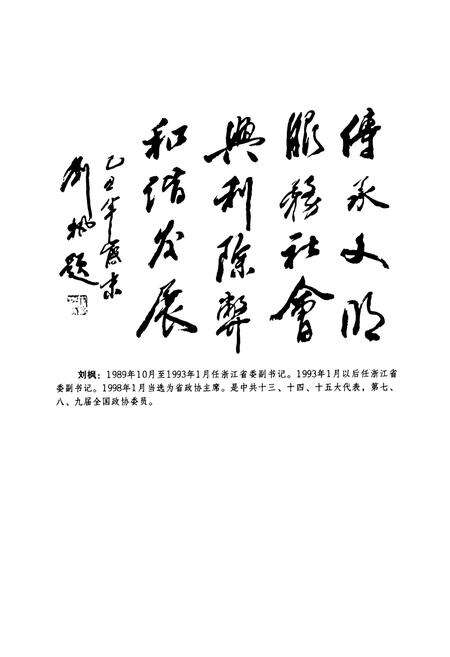 傳承文明
服務社會
興利除弊
和谐发展
乙丑年
刘枫题
刘枫：1989年10月至1993年1月任浙江省委副书记。1993年1月以后任浙江省
委副书记。1998年1月当选为省政协主席。是中共十三、十四、十五大代表，第七、
八、九届全国政协委员。